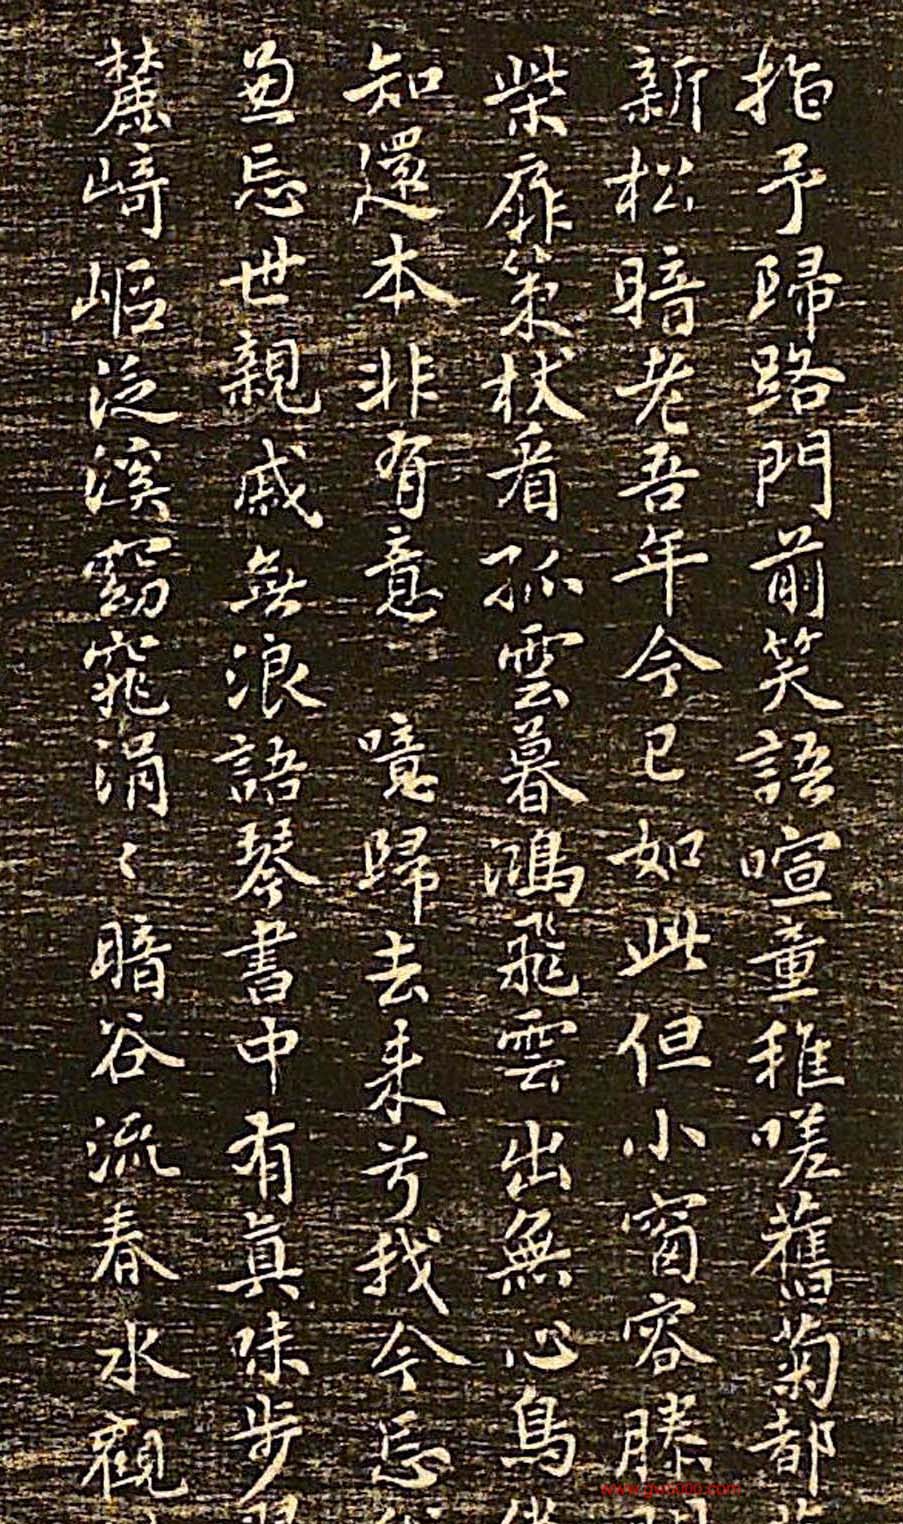 指予歸路門前笑語喧童稚嗟舊菊都
新松暗老吾年今已如此但小窗容膝
柴扉策杖看孤雲暮鴻飛雲出無心鳥
知還本非有意 噫歸去来兮我今忘
兼忘世親戚無浪語琴書中有真味步
麓崎嶇泛溪窈窕涓〻暗谷流春水觀